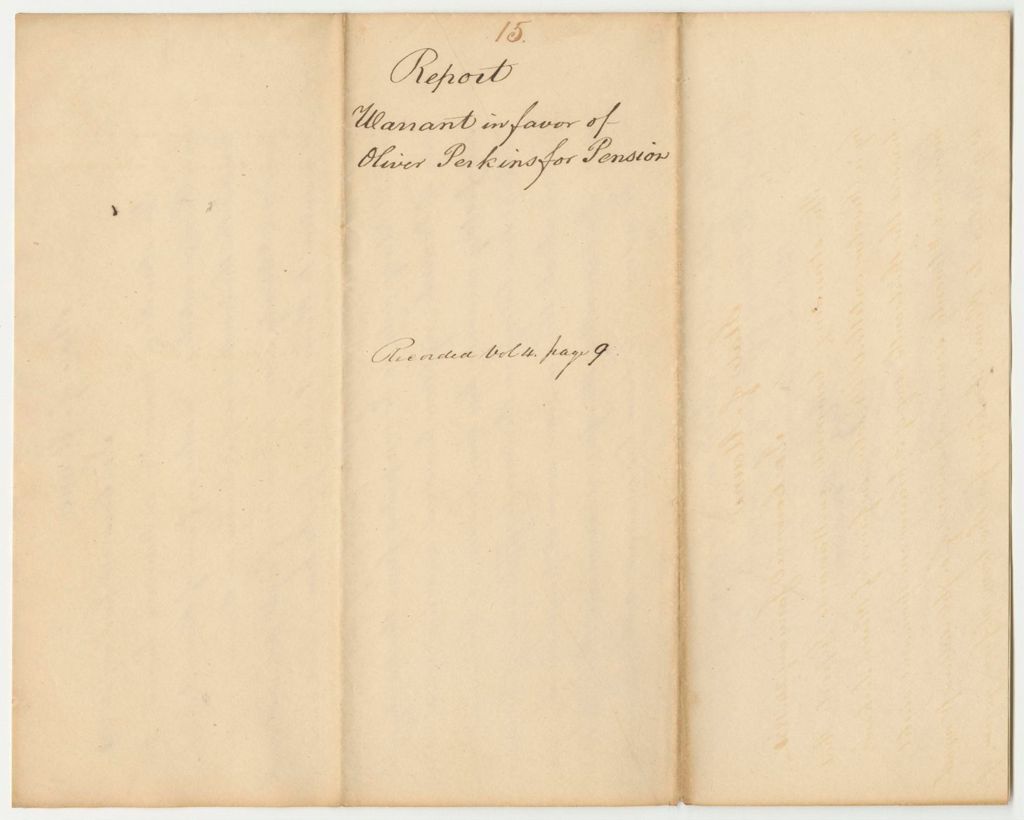 15.
Report
Warrant in favor of
Oliver Perkins for Pension
Recorded Vol 4. page 9.